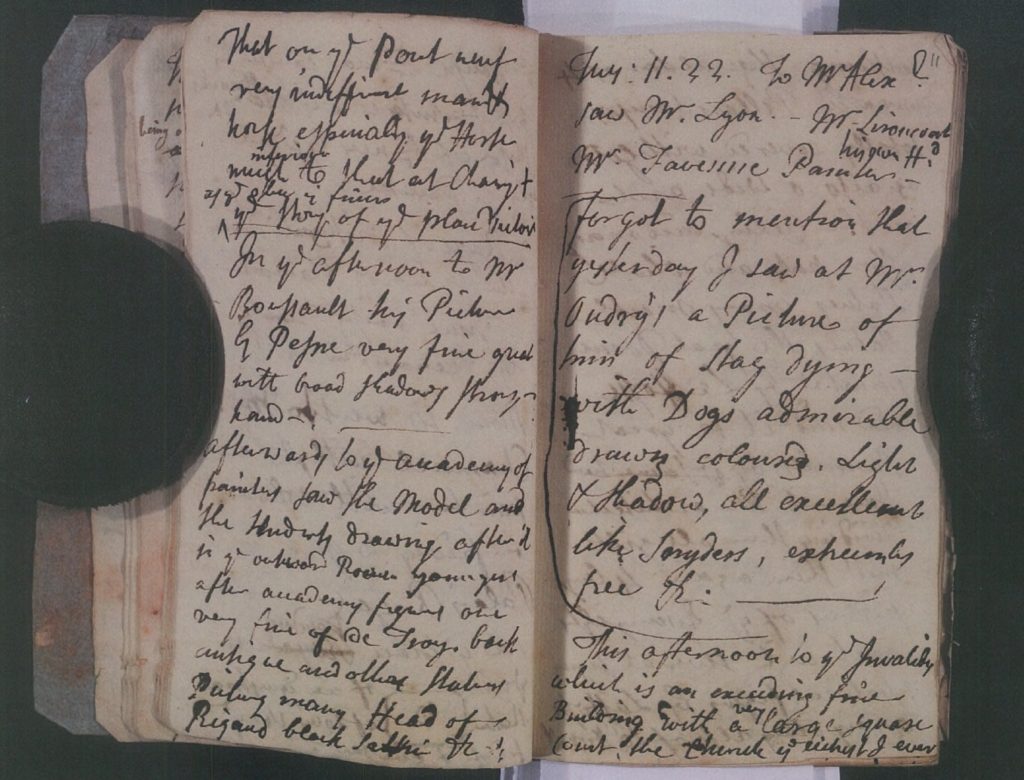 being
That on yͤ Pont neuf
very indifferent man &
horse especially yͤ Horse
inferiour
much to that at Charing +
yͤ Story of yͤ place Victoir
In yͤ afternoon to Mr
Boussault his Picture
by Pesne very fine great
with broad shadows strong
hand -
afterwards to yͤ academy of
painters saw the Model and
the students drawing after it
in yͤ outward Room youngest
after academy figures one
very fine of de Troys back
antique and other statues
Pictures many Head of
Rigaud black Sattin &c
Tusy: 11. 22. To Mr Alex ?
saw Mr. Lyon. - Mr. Lironcourt
his own Hᵈ
Mr Tavernie Painter -
forgot to mention that
yesterday I saw at Mr.
Oudry's a Picture of
him of Stag dying -
with Dogs admirable
drawn coloured, Light
& shadow, all excellent
like Snyders, extreamly
free &c.
This afternoon to yͤ Invalids
which is an exceeding fine
very
Building with a large square
Court, the Church yͤ richest I ever